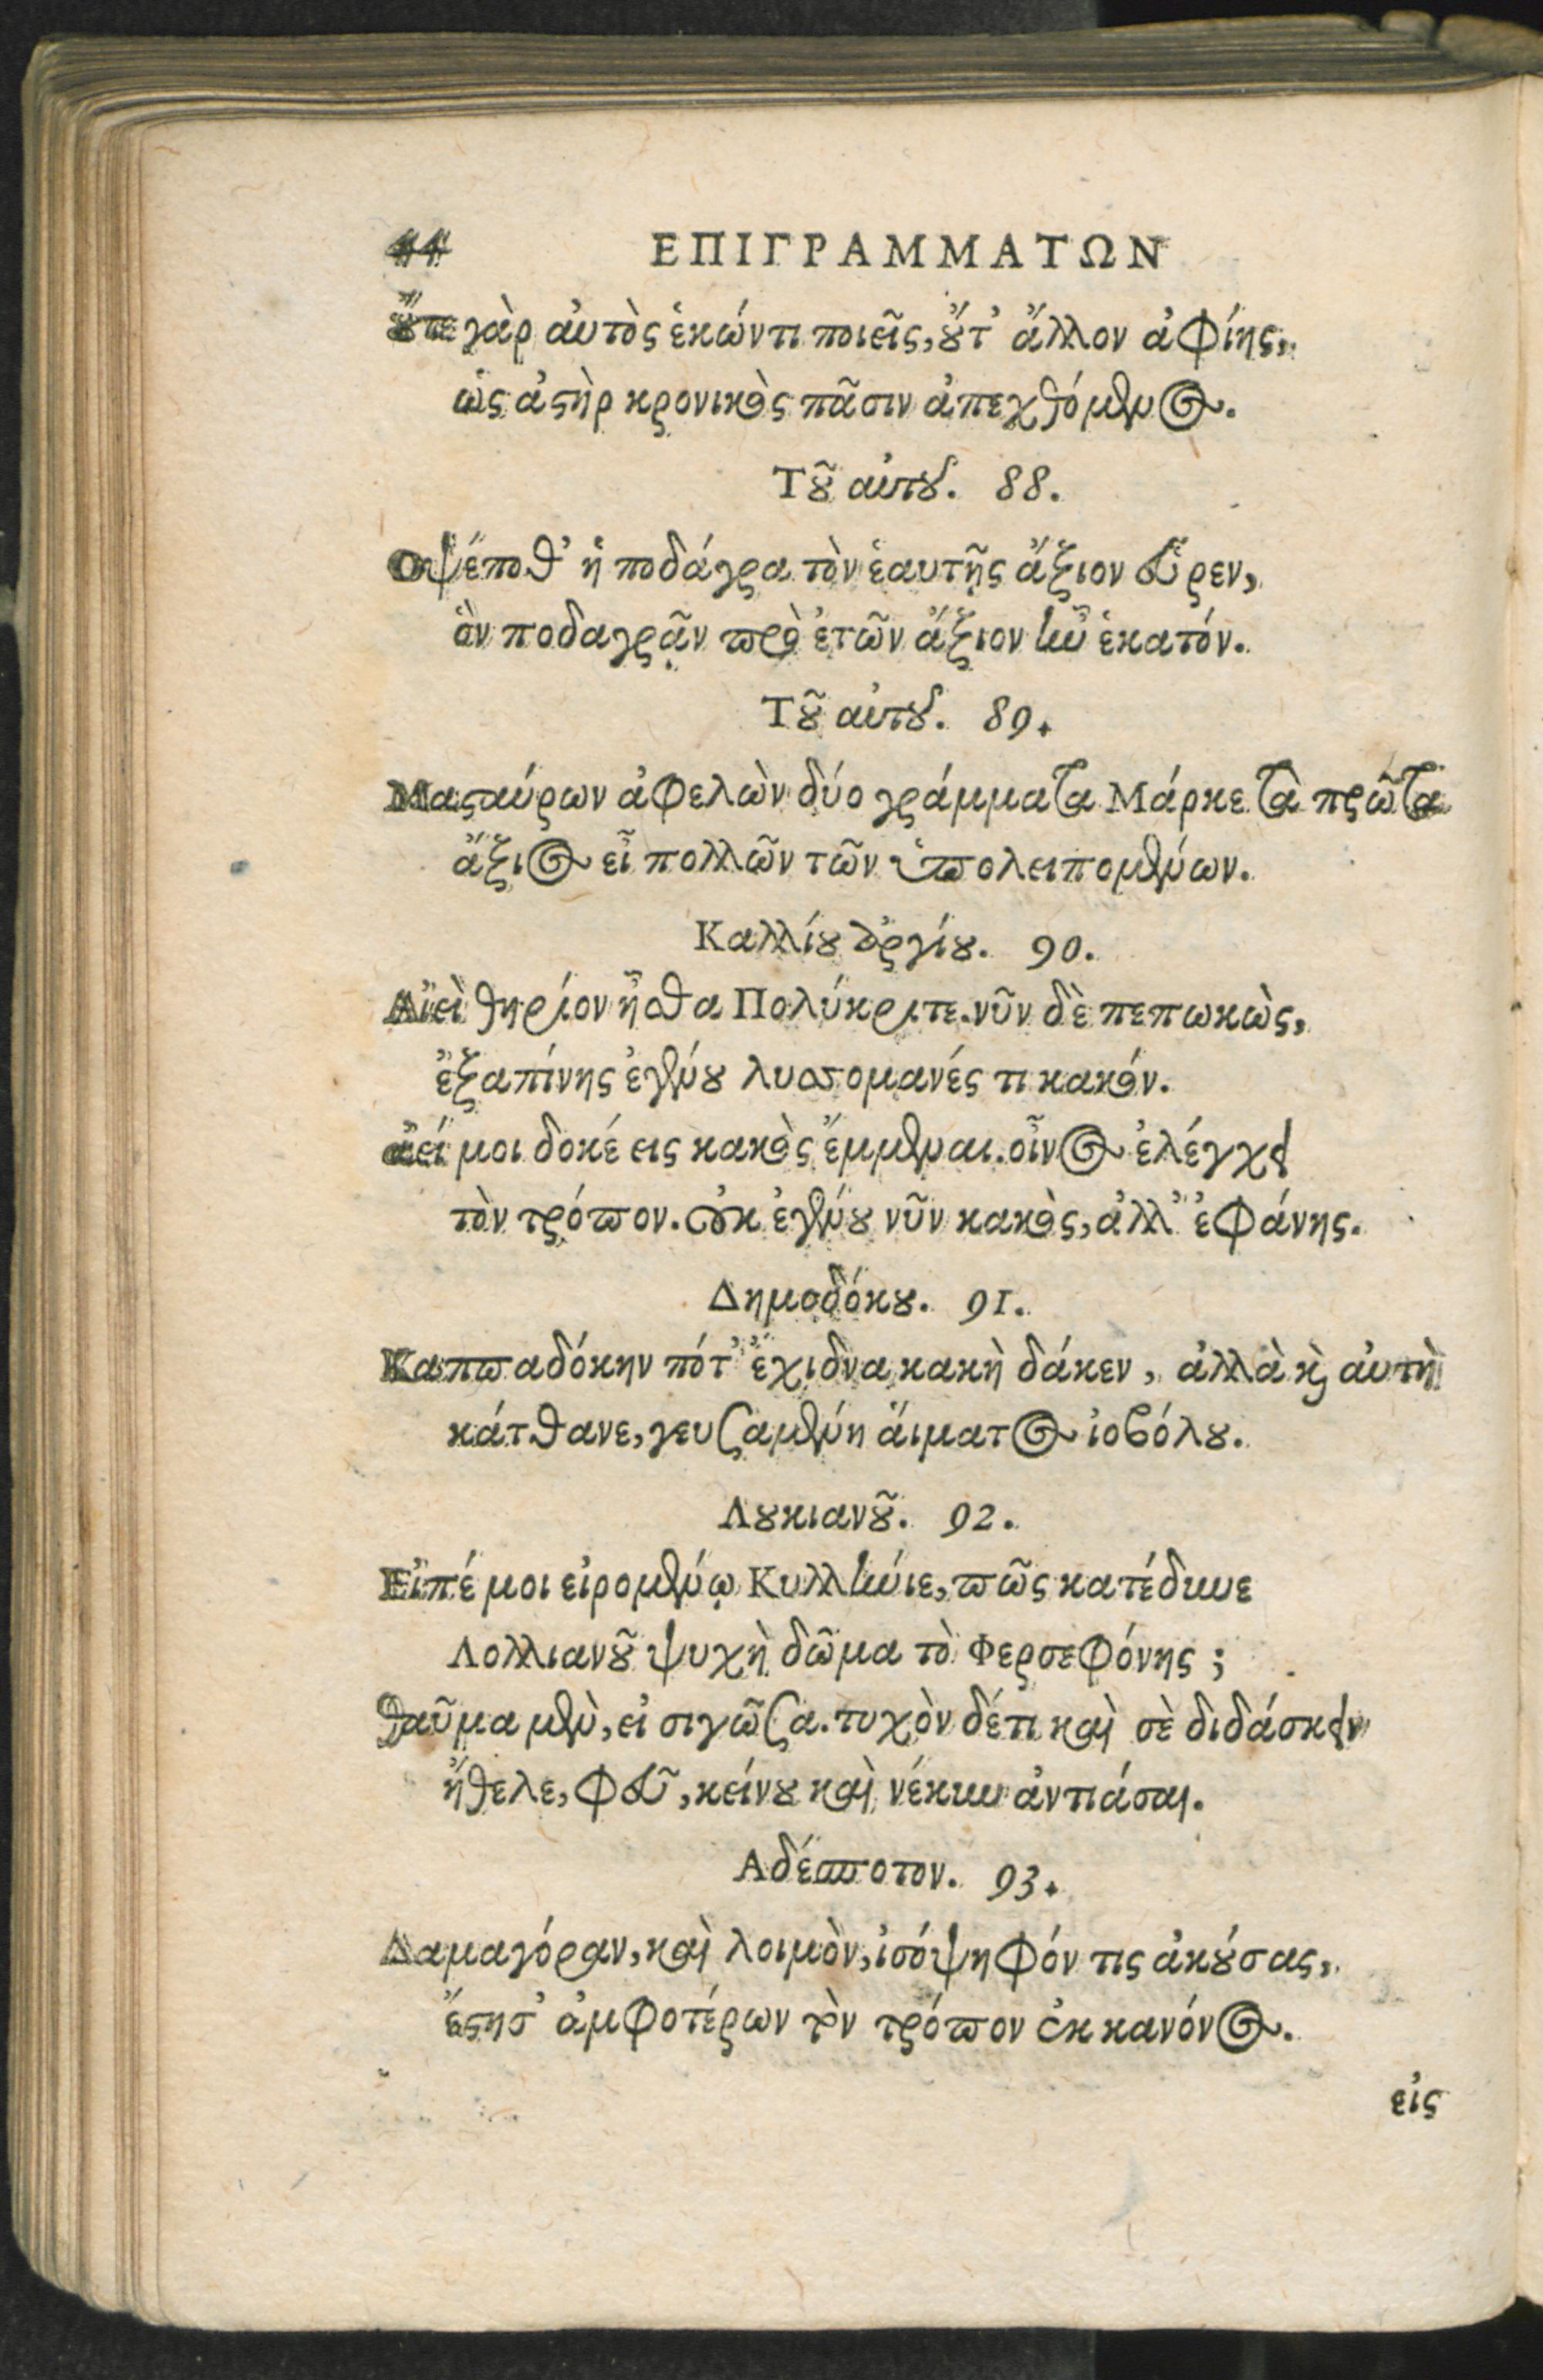 44 ΕΠΙΓΡΑΜΜΑΤΩΝ
οὔτε γὰρ αὐτὸς ἑκών τι ποιεῖς, οὔτ' ἄλλον ἀφίης,
ὡς ἀστὴρ κρονικὸς πᾶσιν ἀπεχθόμενος.
Τοῦ αὐτοῦ. 88.
Οψέ ποθ' ἡ ποδάγρα τὸν ἑαυτῆς ἄξιον εὗρεν,
ὃν ποδαγρᾷν πρὸ ἐτῶν ἄξιον ἦν ἑκατόν.
Τοῦ αὐτοῦ. 89.
Μασταύρων ἀφελὼν δύο γράμματα Μάρκε τὰ πρῶτα
ἄξιος εἶ πολλῶν τῶν ὑπολειπομένων.
Καλλίου ἀργίου. 90.
Αἰεὶ θηρίον ἦσθα Πολύκριτε. νῦν δὲ πεπωκὼς,
ἐξαπίνης ἐγένου λυσσομανές τι κακόν.
αἰεί μοι δοκέεις κακὸς ἔμμεναι. οἶνος ἐλέγχει
τὸν τρόπον. οὐκ ἐγένου νῦν κακὸς, ἀλλ' ἐφάνης.
Δημοδόκου. 91.
Καππαδόκην πότ' ἔχιδνα κακὴ δάκεν, ἀλλὰ καὶ αὐτὴ
κάτθανε, γευσαμένη αἵματος ἰοβόλου.
Λουκιανοῦ. 92.
Εἰπέ μοι εἰρομένῳ Κυλλήνιε, πῶς κατέδυνε
Λολλιανοῦ ψυχὴ δῶμα τὸ Φερσεφόνης;
θαῦμα μὲν, εἰ σιγῶσα. τυχὸν δέ τι καὶ σὲ διδάσκειν
ἤθελε, φεῦ, κείνου καὶ νέκυν ἀντιάσαι.
Αδέσποτον. 93.
Δαμαγόραν, καὶ λοιμὸν, ἰσόψηφόν τις ἀκούσας,
ἔστησ' ἀμφοτέρων τὸν τρόπον ἐκ κανόνος.
εἰς